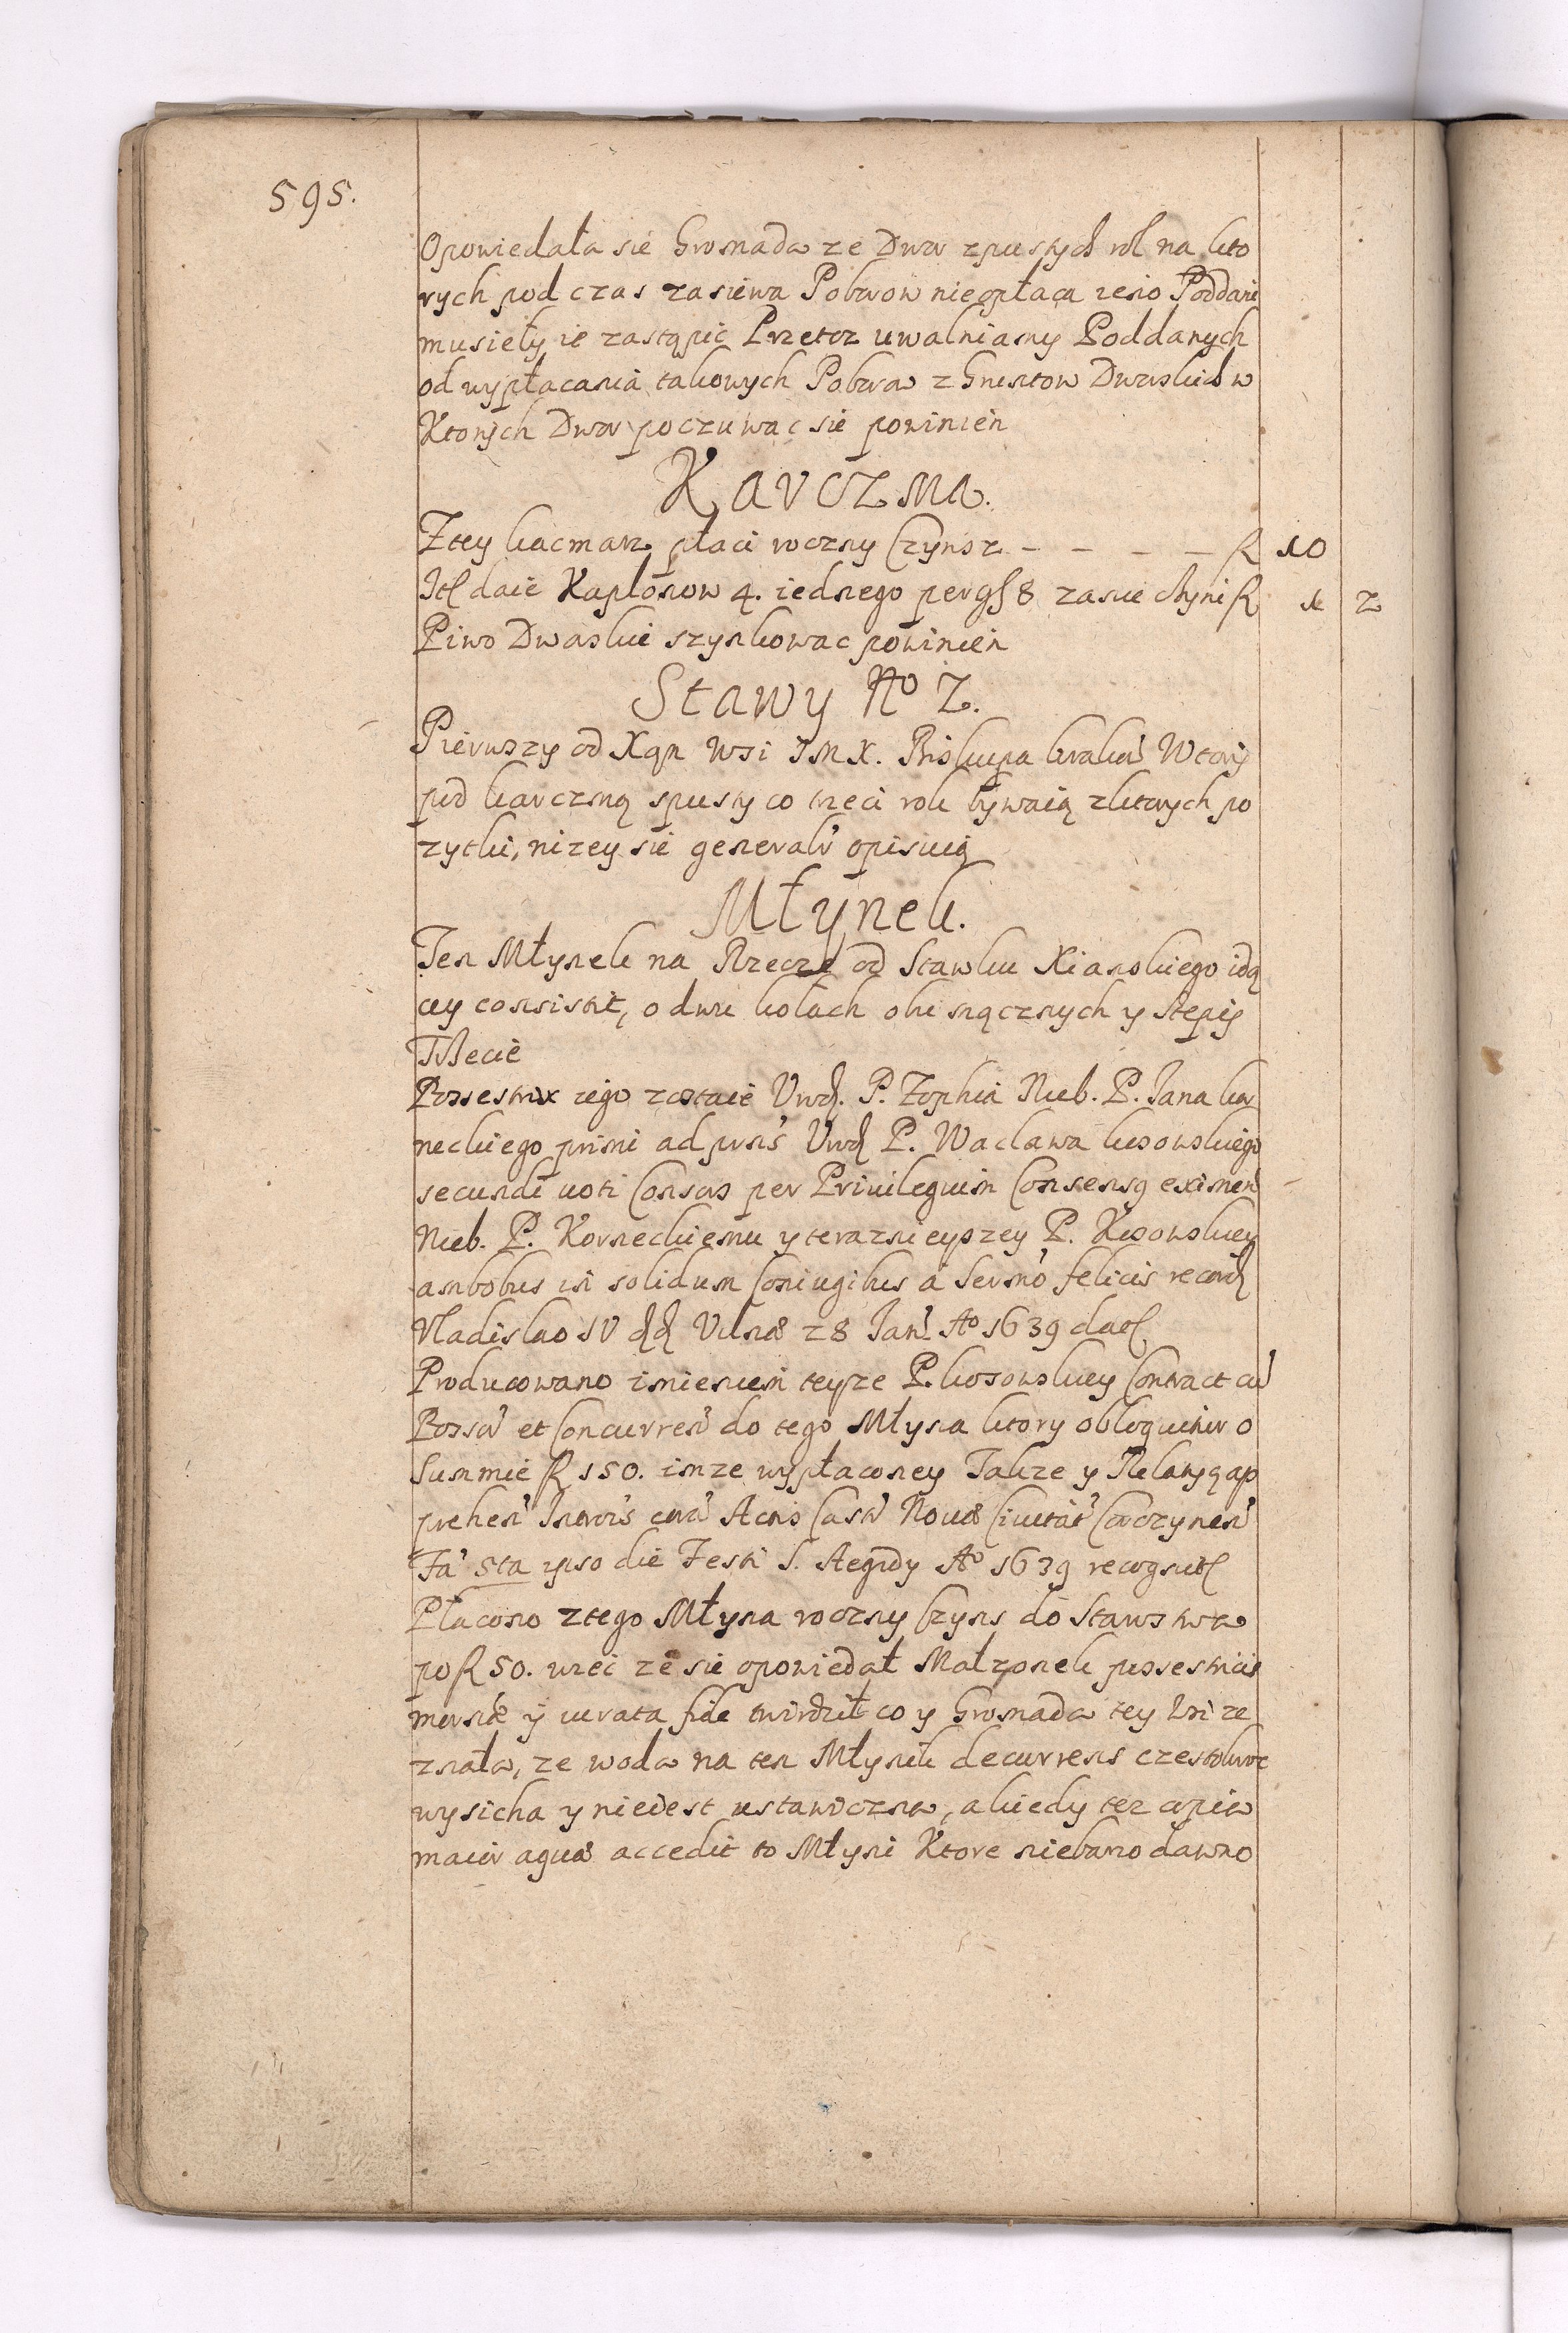 595.
Opowiedała sie Gromada ze Dwor zpustych rol na kto
rych pod czas zasiewa Poborow nie opłaca ieno Poddani
musiely ie zastąpic Przetoz uwalniamy Poddanych
od wypłacania takowych Pobora z Gruntow Dworskich w
Ktorych Dwor poczuwac sie powinien
Karczma.
Ztey kaczmarz płaci roczny Czynsz - - - - - f 10
Itt daie Kapłonow 4. iednego per gs 8 zasie chyni f 1 2
Piwo Dworskie szynkowac powinien
Stawy No 2.
Pierwszy od Xąn Wsi JMX. Biskupa krako' Wtory
pod karczmą spusty co trzeci rok bywaią z ktorych po
zytki, nizey sie general' opisuią
Młynek.
Ten Młynek na Rzecze od Stawku Xianskiego idą
cey consistit, o dwu kołach oku mącznych y stępy
Trzecie
Possestrix iego zostaie Urod. P. Zophia Nieb. P. Jana kor
neckiego primi ad pns' Urod P. Wacława kosowskiego
secundi uoti Consors per Priuilegium Consensq eximen
Nieb. P. Korneckiemu y terazнieyszey P. Kosowskiey
ambobus in solidum Coniugibus a Sermo' felicis record
Vladislao IV dd Vilnæ 28 Jan' Ao 1639 dat
Producowano imieniem teyze P. kosowskiey Contract cu'
Possa' et Concurren' do tego Młyna ktory obloquitur o
Summie f 150. imze wypłaconey Takze y Relatyą ap
prehen' cora' Actis Cast' Nouæ Ciuitat' Corczynen'
Fa' Sta ipso die Festi S. Aegidy Ao 1639 recognit
Płacono ztego Młyna roczny Czyns do Starostwa
po f 50. wrei ze sie opowiedał Małzonek possestricis
y iurata fide twirdził co y Gromada tey Wsi ze
znała, ze woda na ten Młynek decurrens czestokroc
wysicha y nieiest ustawiczna, a kiedy tez copia
maior aquæ accedit to Młyni Ktore niebarzo dawno